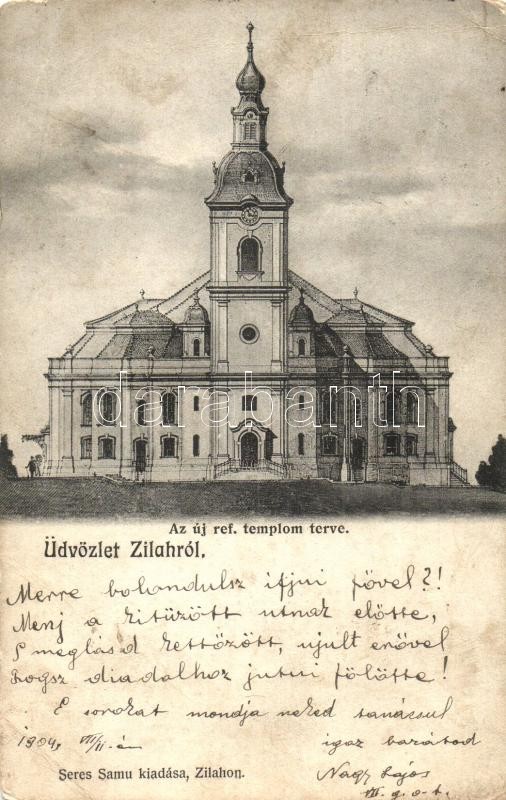 darabanth
Az új ref. templom terve.
Üdvözlet Zilahról,
Merre bolondulsz ifjui fővel?!
Menj a kitüzött utnak előtte,
S meglásd kettőzött, ujult erővel
Fogsz diadalhoz jutni fölötte!
E sorokat mondja neked tanácsul
1904, VIII/11-én igaz barátod
Seres Samu kiadása, Zilahon. Nagy Lajos
VII. g. o. t.